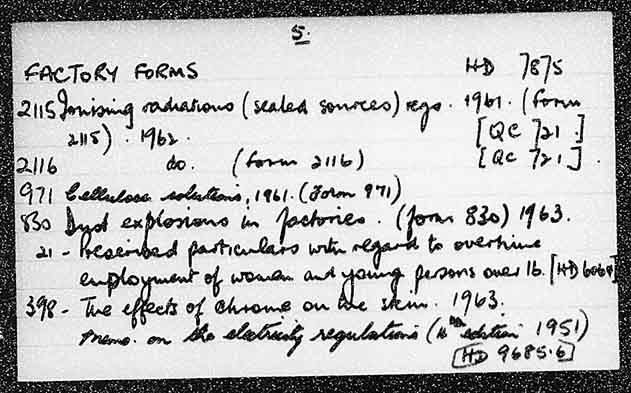 5.
FACTORY FORMS HD 7875
2115 Ionising radiations (sealed sources) regs. 1961. (Form
2115). 1962. [QC 721.]
2116 do. (Form 2116) [QC 721].
971 Cellulose solutions, 1961. (Form 971)
830 Dust explosions in factories. (form 830) 1963.
21 - Prescribed particulars with regard to overtime
employment of women and young persons over 16. [HD 6064]
398 - The effects of chrome on the skin. 1963.
Memo. on the electricity regulations ( edition 1951)
[HD 9685.6]